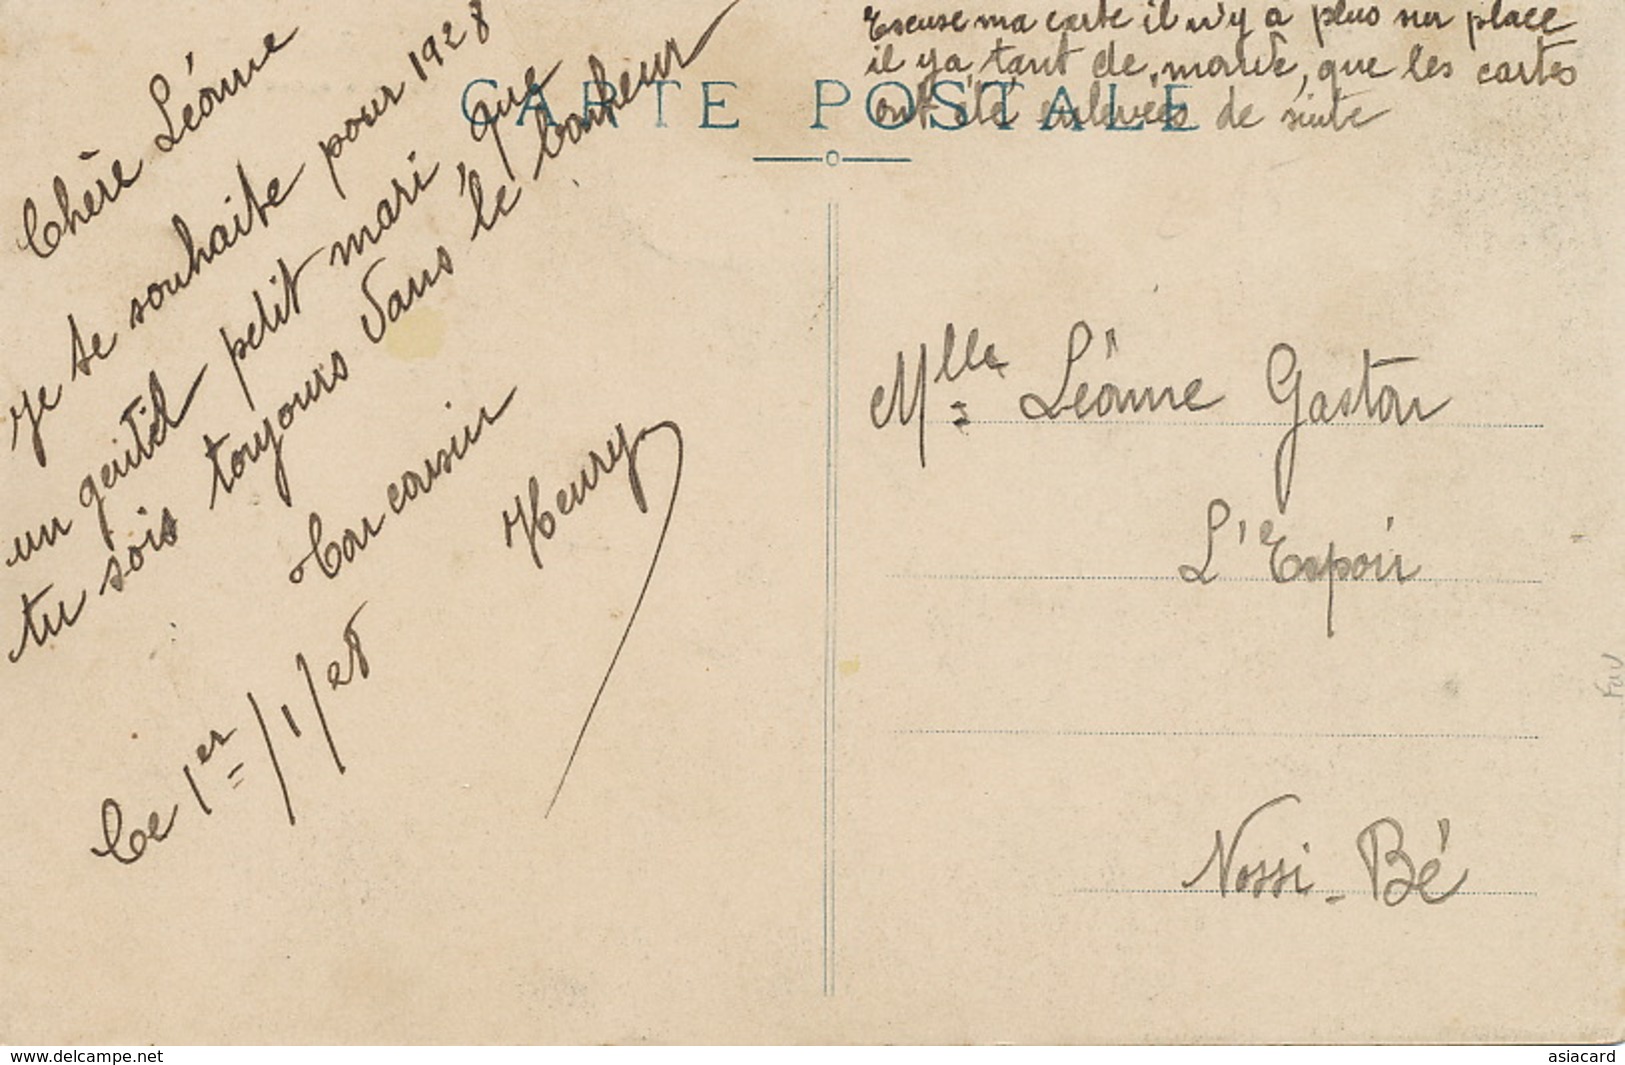 Excuse ma carte il n'y a plus sur place
il y a, tant de, monde, que les cartes
ont été enlevées de suite
CARTE POSTALE
Chère Léonne
Je te souhaite pour 1928
un gentil petit mari, que
tu sois toujours dans le bonheur
Ton cousin
Henry
Ce 1er/1/28
Mlle Léonne Gaston
L'Espoir
Nossi-Bé
Fav
www.delcampe.net
asiacard